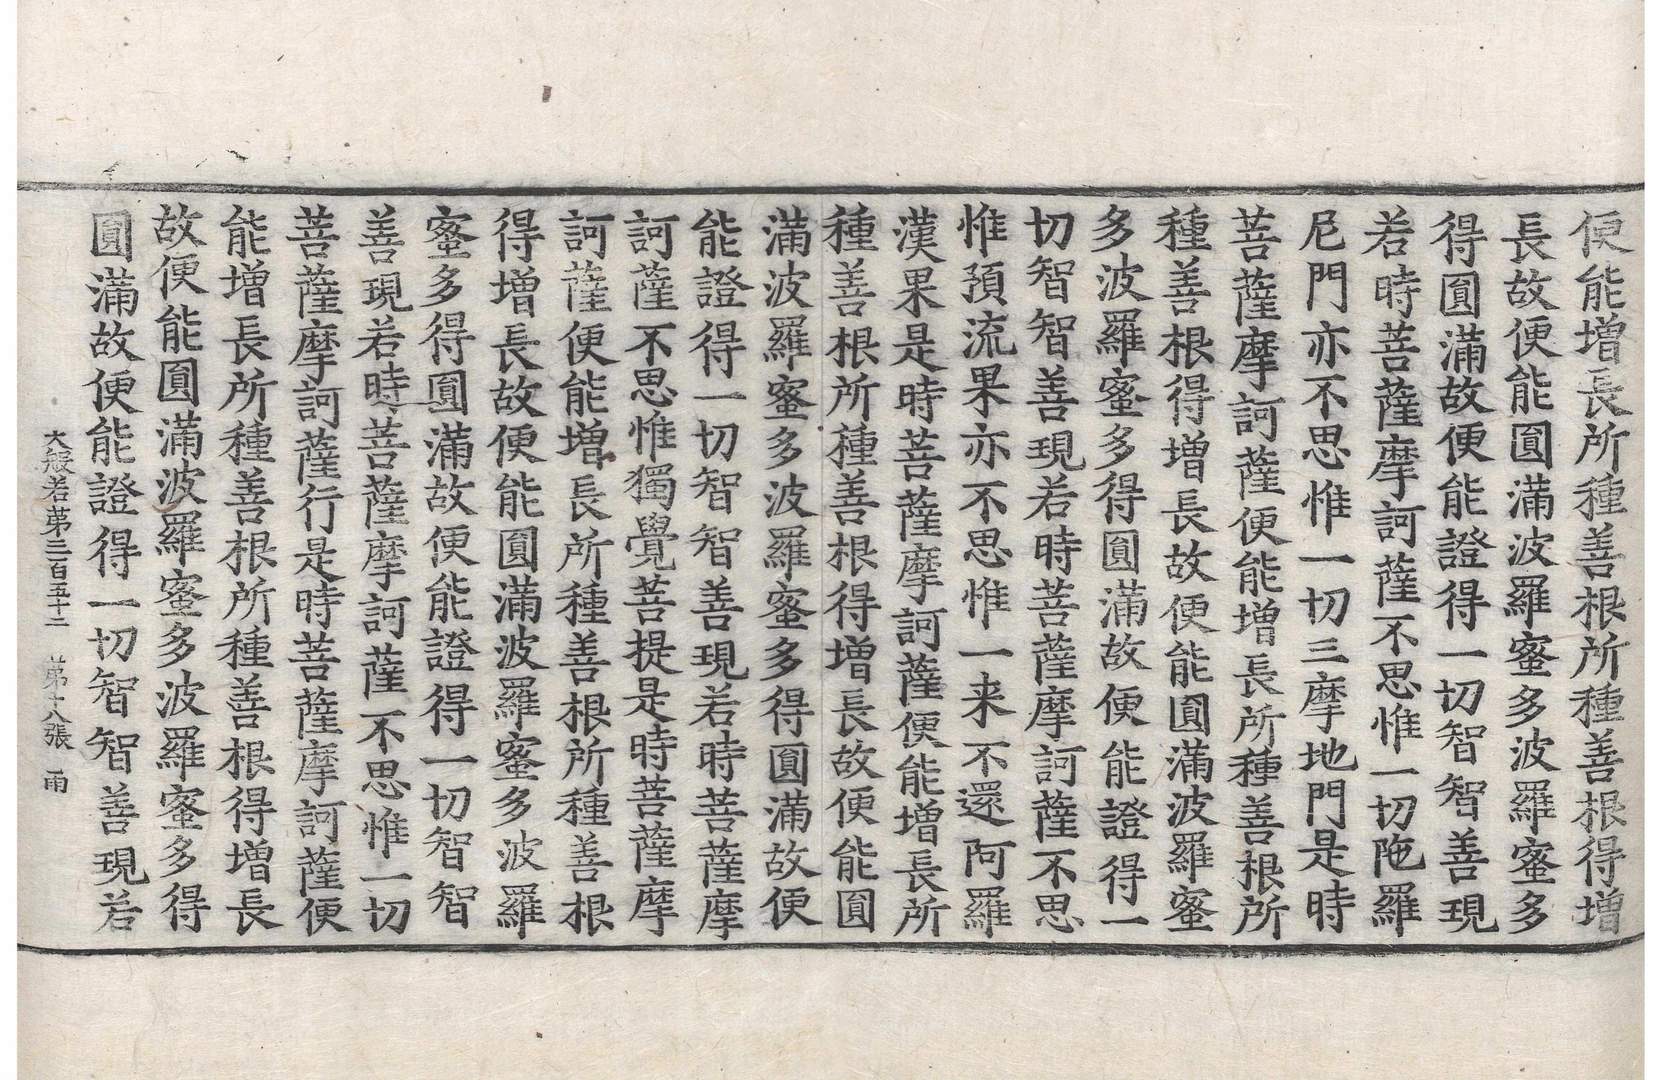 便能增長所種善根所種善根得增
長故便能圓滿波羅蜜多波羅蜜多
得圓滿故便能證得一切智智善現
若時菩薩摩訶薩不思惟一切陁羅
尼門亦不思惟一切三摩地門是時
菩薩摩訶薩便能增長所種善根所
種善根得增長故便能圓滿波羅蜜
多波羅蜜多得圓滿故便能證得一
切智智善現若時菩薩摩訶薩不思
惟預流果亦不思惟一来不還阿羅
漢果是時菩薩摩訶薩便能增長所
種善根所種善根得增長故便能圓
滿波羅蜜多波羅蜜多得圓滿故便
能證得一切智智善現若時菩薩摩
訶薩不思惟獨覺菩提是時菩薩摩
訶薩便能增長所種善根所種善根
得增長故便能圓滿波羅蜜多波羅
蜜多得圓滿故便能證得一切智智
善現若時菩薩摩訶薩不思惟一切
菩薩摩訶薩行是時菩薩摩訶薩便
能增長所種善根所種善根得增長
故便能圓滿波羅蜜多波羅蜜多得
圓滿故便能證得一切智智善現若
大般若第三百五十二 第十八張 雨